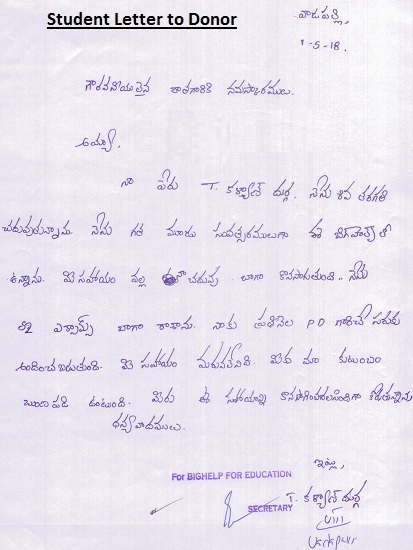 Student Letter to Donor
వాడపల్లి,
1-5-18.
గౌరవనీయులైన దాతగారికి నమస్కారములు.
అయ్యా,
నా పేరు T. కళ్యాణ్ దుర్గ. నేను 8వ తరగతి
చదువుతున్నాను. నేను గత మూడు సంవత్సరములుగా ఈ బిగ్‌హెల్ప్ లో
ఉన్నాను. మీ సహాయం వల్ల నా చదువు బాగా కొనసాగుతుంది.. నేను
ఎగ్జామ్స్ బాగా రాశాను. నాకు ప్రతినెల P D గారిచే సరుకు
అందించబడుతుంది. మీ సహాయం మరువలేనిది. మీకు మా కుటుంబం
ఋణపడి ఉంటుంది. మీరు ఈ సహాయాన్ని కొనసాగించవలసిందిగా కోరుతున్నాను
ధన్యవాదములు.
ఇట్లు,
For BIGHELP FOR EDUCATION
T. కళ్యాణ్ దుర్గ
SECRETARY
VIII